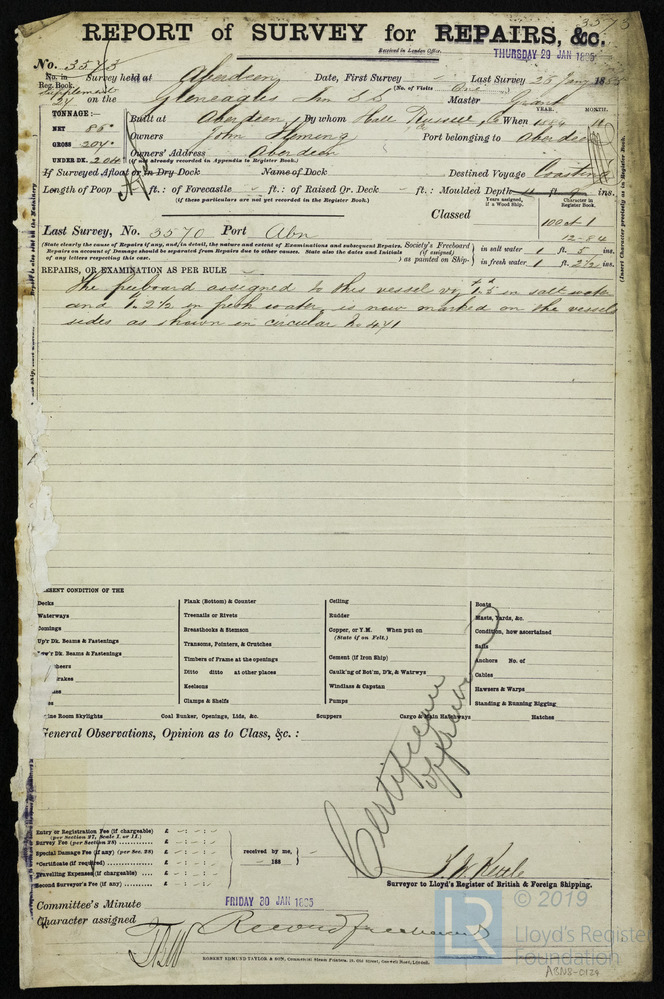 3573
REPORT of SURVEY for REPAIRS, &c.
Received in London Office,
THURSDAY 29 JAN 1885
No. 3573
No. in Reg. Book. Survey held at Aberdeen Date, First Survey Last Survey 25 Jany 1885
(No. of Visits One)
Supplement 24 on the Gleneagles Master Grant
TONNAGE:— YEAR. MONTH.
Built at Aberdeen By whom Hall Russell & Co When 1884 11
NET 85
GROSS 204 Owners John Fleming Port belonging to Aberdeen
UNDER DK. 200 Owners' Address Aberdeen
(if not already recorded in Appendix to Register Book.)
If Surveyed Afloat or in Dry Dock Name of Dock Destined Voyage Coasting
Length of Poop - ft.: of Forecastle - ft.: of Raised Qr. Deck - ft.: Moulded Depth ft. ins.
(if these particulars are not yet recorded in the Register Book.)
Years assigned, if a Wood Ship. Character in Register Book.
Classed 100 at 1
12-84
Last Survey, No. 3570 Port Abn
(State clearly the cause of Repairs if any, and, in detail, the nature and extent of Examinations and subsequent Repairs.
Repairs on account of Damage should be separated from Repairs due to other causes. State also the dates and Initials
of any letters respecting this case.
Society's Freeboard (if assigned) as painted on Ship. in salt water 1 ft. 5 ins.
in fresh water 1 ft. 2½ ins.
(Insert Character precisely as in Register Book.
REPAIRS, OR EXAMINATION AS PER RULE
The freeboard assigned to this vessel viz 1.5 in salt water
and 1. 2½ in fresh water, is now marked on the vessels
sides as shown in circular No 441
PRESENT CONDITION OF THE
Decks
Waterways
Comings
Up'r Dk. Beams & Fastenings
Dk. Beams & Fastenings
Engine Room Skylights
Plank (Bottom) & Counter
Treenails or Rivets
Breasthooks & Stemson
Transoms, Pointers, & Crutches
Timbers of Frame at the openings
Ditto ditto at other places
Keelsons
Clamps & Shelfs
Coal Bunker, Openings, Lids, &c.
Ceiling
Rudder
Copper, or Y.M. When put on
(State if on Felt.)
Cement (if Iron Ship)
Caulk'ng of Bot'm, D'k, & Watrwys
Windlass & Capstan
Pumps
Scuppers
Cargo & Main Hatchways
Boats
Masts, Yards, &c.
Condition, how ascertained
Sails
Anchors No. of
Cables
Hawsers & Warps
Standing & Running Rigging
Hatches
General Observations, Opinion as to Class, &c. :
Entry or Registration Fee (if chargeable) £ - : - : -
(per Section 27, Scale I. or II.)
Survey Fee (per Section 28) £ - : - : -
Special Damage Fee (if any) (per Sec. 28) £ - : - : -
*Certificate (if required) £ - : - : -
Travelling Expenses (if chargeable) £ - : - : -
Second Surveyor's Fee (if any) £ - : - : -
received by me,
188
Surveyor to Lloyd's Register of British & Foreign Shipping.
Committee's Minute FRIDAY 30 JAN 1885
Character assigned Record freeboards
ROBERT EDMUND TAYLOR & SON, Commercial Steam Printers, 19, Old Street, Goswell Road, London.
© 2019
LR
Lloyd's Register
Foundation
ABN8-0124